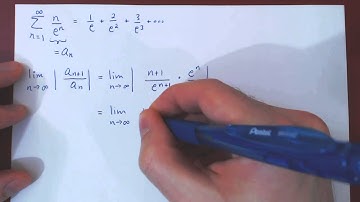 ∞
∑ n/eⁿ = 1/e + 2/e² + 3/e³ + ...
n=1
= aₙ
lim n→∞ | aₙ₊₁ / aₙ | = lim n→∞ | n+1 / eⁿ⁺¹ · eⁿ |
= lim n→∞
Pentel